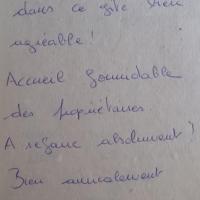 dans ce gîte bien
agréable !
Accueil formidable
des propriétaires.
A refaire absolument !
Bien amicalement